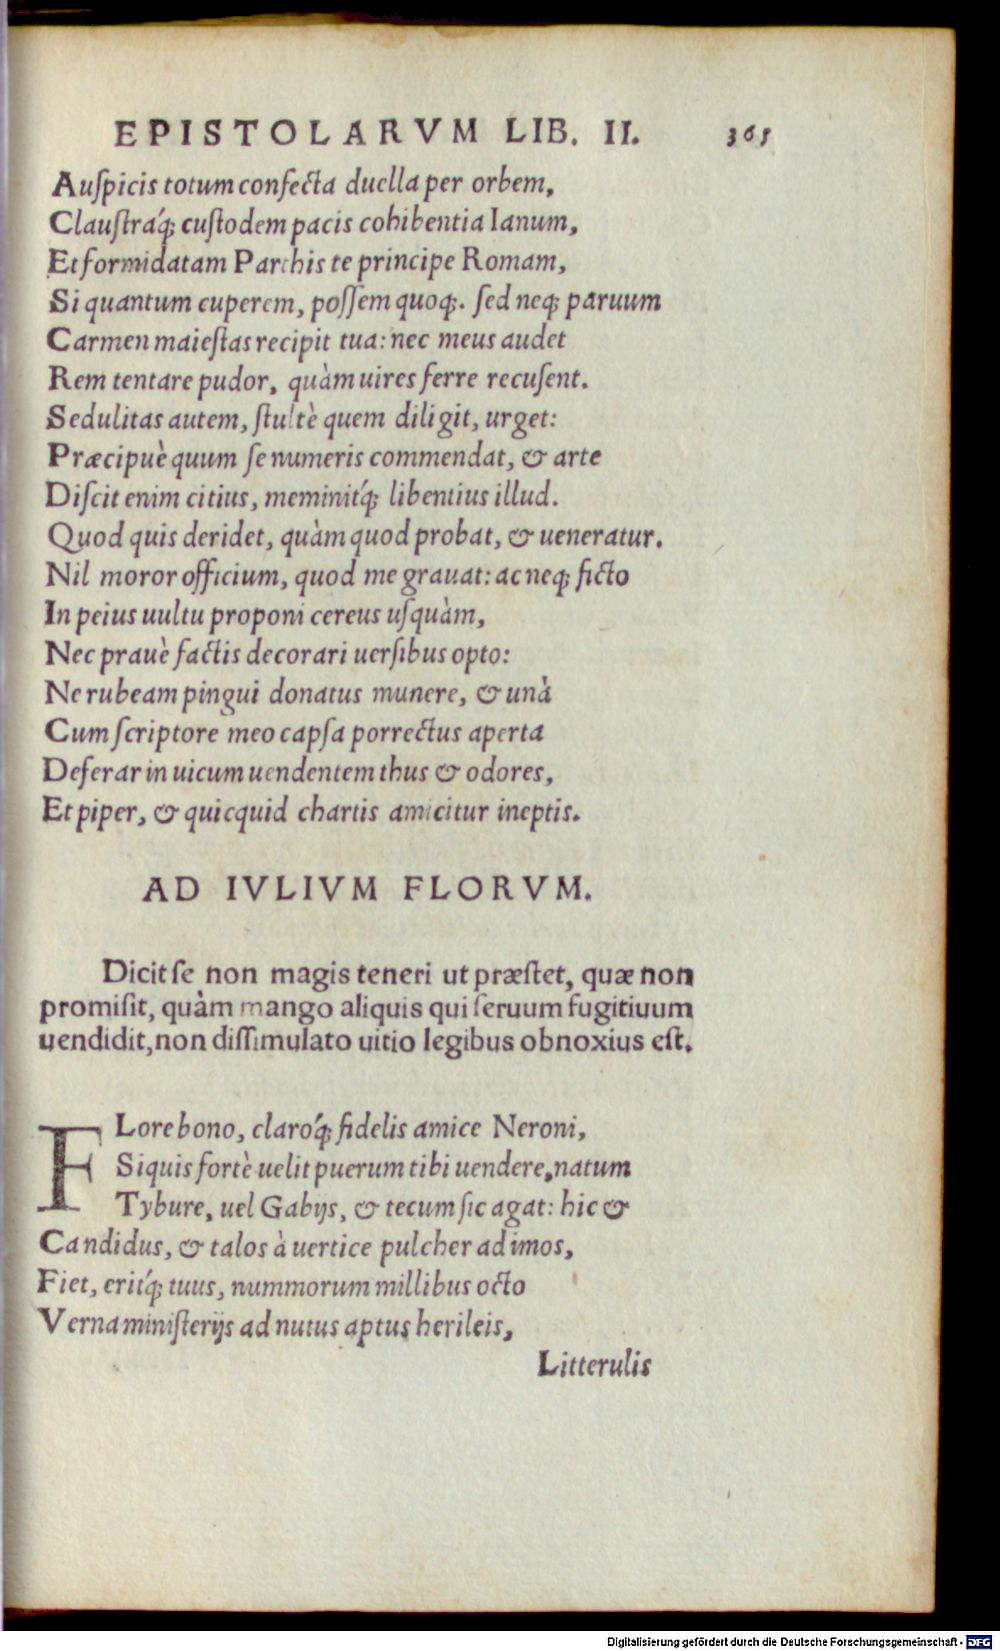 EPISTOLARVM LIB. II. 365
Auſpicis totum confecta duella per orbem,
Clauſtráq; cuſtodem pacis cohibentia Ianum,
Et formidatam Parthis te principe Romam,
Si quantum cuperem, poſſem quoq;. ſed neq; paruum
Carmen maieſtas recipit tua: nec meus audet
Rem tentare pudor, quàm uires ferre recuſent.
Sedulitas autem, ſtultè quem diligit, urget:
Præcipuè quum ſe numeris commendat, & arte
Diſcit enim citius, meminitq́; libentius illud.
Quod quis deridet, quàm quod probat, & ueneratur.
Nil moror officium, quod me grauat: ac neq; ficto
In peius uultu proponi cereus uſquàm,
Nec prauè factis decorari uerſibus opto:
Ne rubeam pingui donatus munere, & unà
Cum ſcriptore meo capſa porrectus aperta
Deferar in uicum uendentem thus & odores,
Et piper, & quicquid chartis amicitur ineptis.
AD IVLIVM FLORVM.
Dicit ſe non magis teneri ut præſtet, quæ non
promiſit, quàm mango aliquis qui ſeruum fugitiuum
uendidit, non diſſimulato uitio legibus obnoxius eſt.
FLore bono, claroq́; fidelis amice Neroni,
Si quis fortè uelit puerum tibi uendere, natum
Tybure, uel Gabijs, & tecum ſic agat: hic &
Candidus, & talos à uertice pulcher ad imos,
Fiet, eritq́; tuus, nummorum millibus octo
Verna miniſterijs ad nutus aptus herileis,
Litterulis
Digitalisierung gefördert durch die Deutsche Forschungsgemeinschaft - DFG